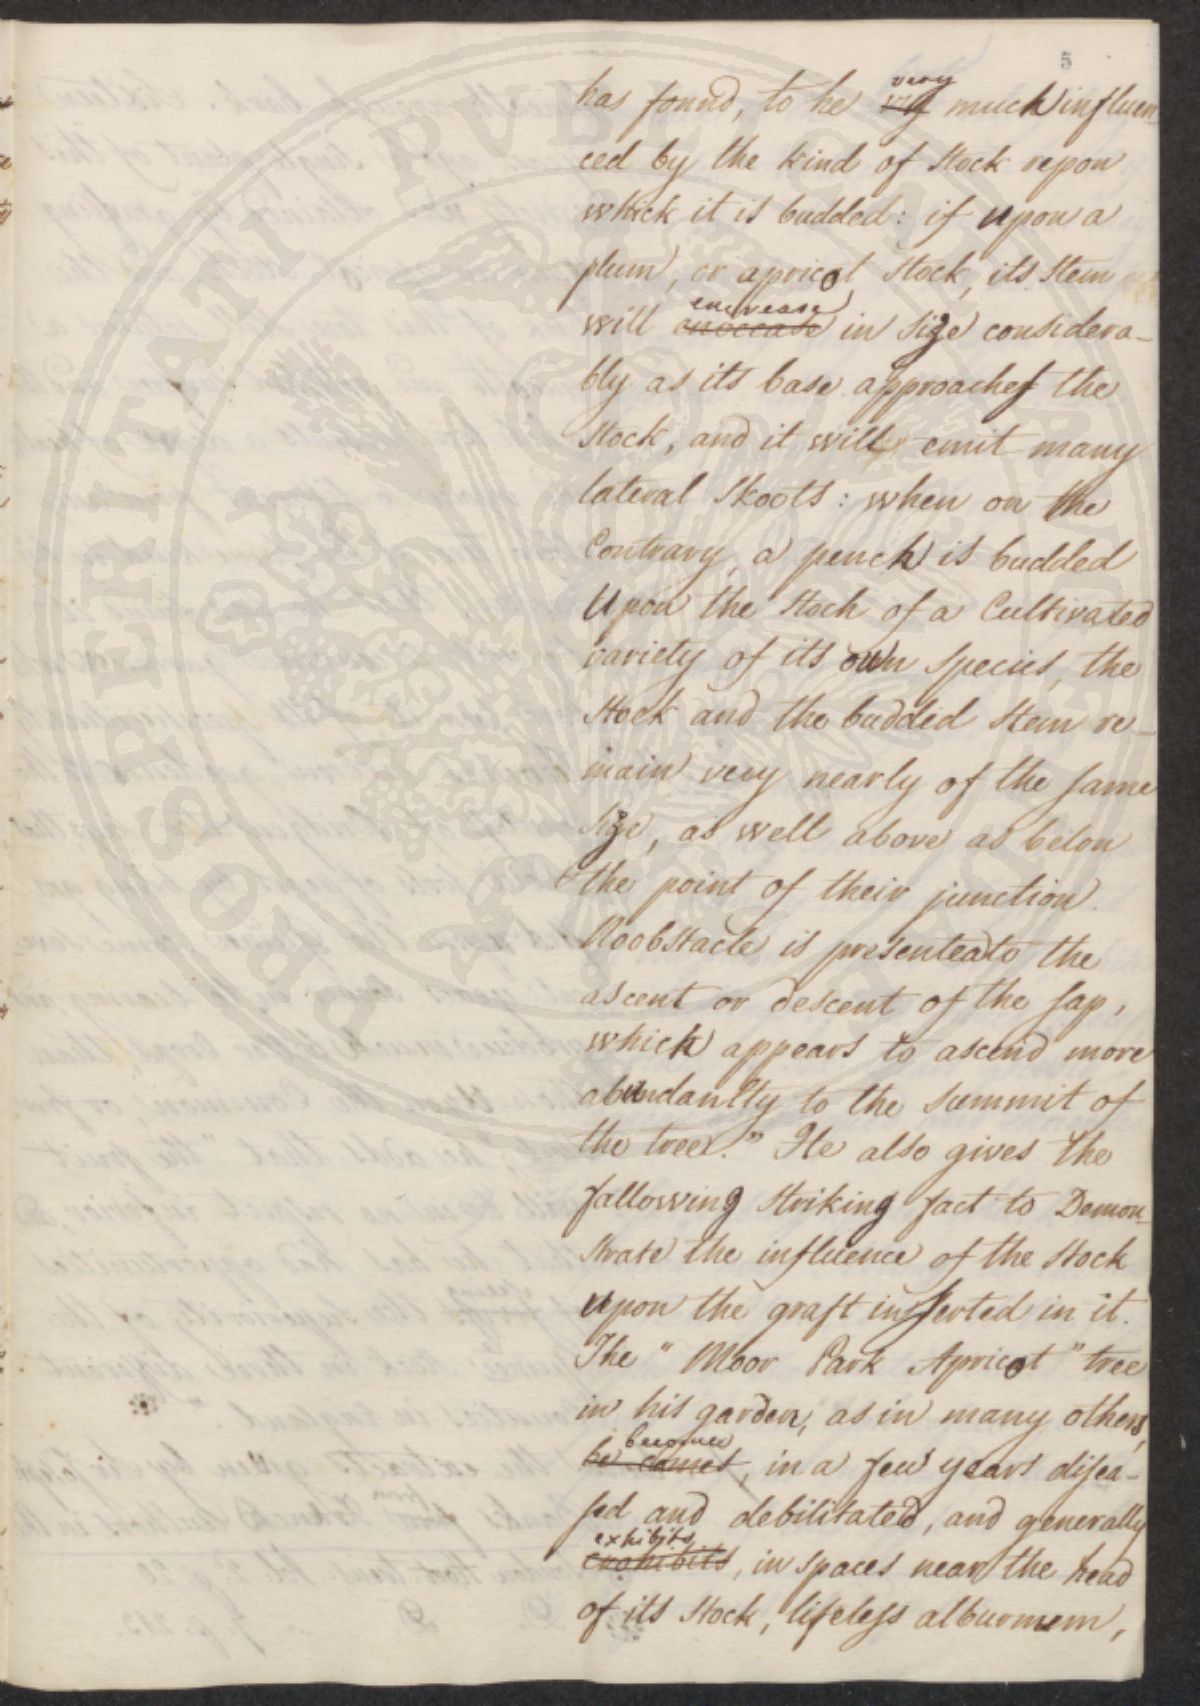 5
has found, to be very much influen
ced by the kind of Stock upon
which it is budded: if upon a
plum, or apricot Stock, its Stem
will increase in Size considera-
bly as its base approaches the
Stock, and it will emit many
lateral Shoots: when on the
Contrary, a peach is budded
Upon the Stock of a Cultivated
variety of its own Species, the
Stock and the budded Stem re-
main very nearly of the same
Size, as well above as below
the point of their junction.
No obstacle is presented to the
ascent or descent of the sap,
which appears to ascend more
abundantly to the summit of
the tree." He also gives the
fallowing Striking fact to Demon-
strate the influence of the Stock
upon the graft inserted in it.
The "Moor Park Apricot" tree
in his garden, as in many others,
becomes be comes, in a few years disea-
sed and debilitated, and generally
exhibits, in spaces near the head
of its Stock, lifeless alburmem,
PROSPERITATI PUBLICAE